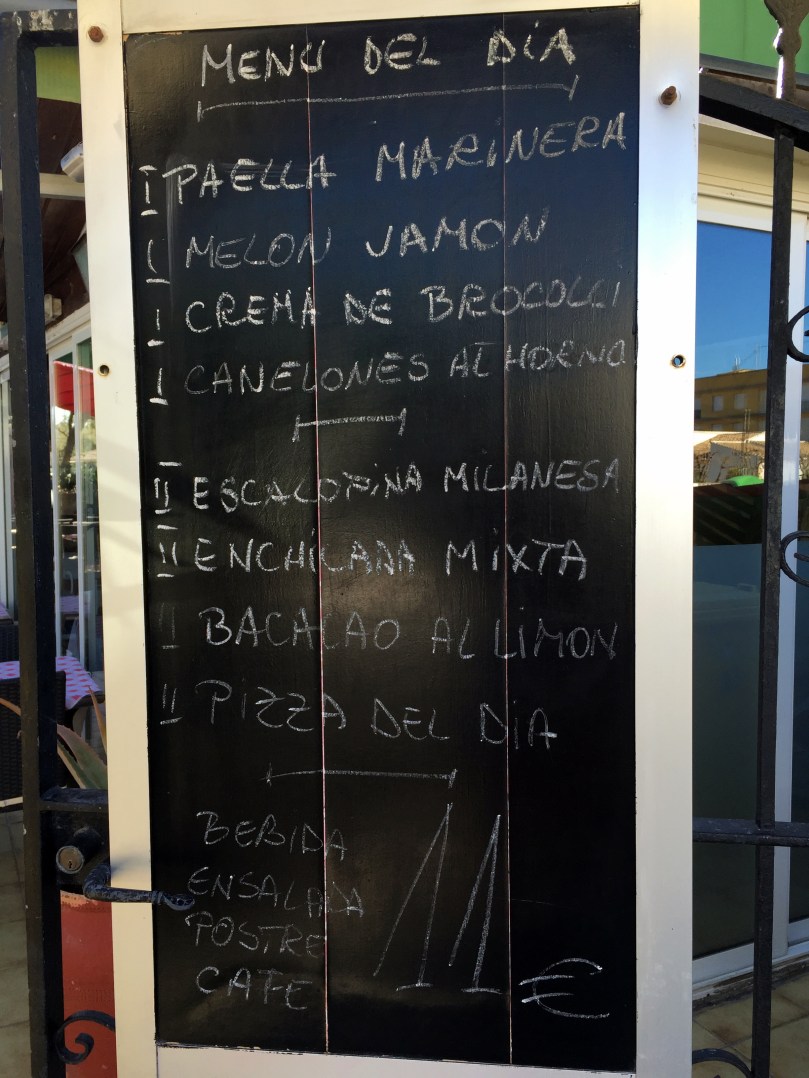 MENU DEL DIA
I PAELLA MARINERA
I MELON JAMON
I CREMA DE BROCOLLI
I CANELONES AL HORNO
II ESCALOPINA MILANESA
II ENCHILADA MIXTA
II BACALAO AL LIMON
II PIZZA DEL DIA
BEBIDA
ENSALADA
POSTRE
CAFE
11 €